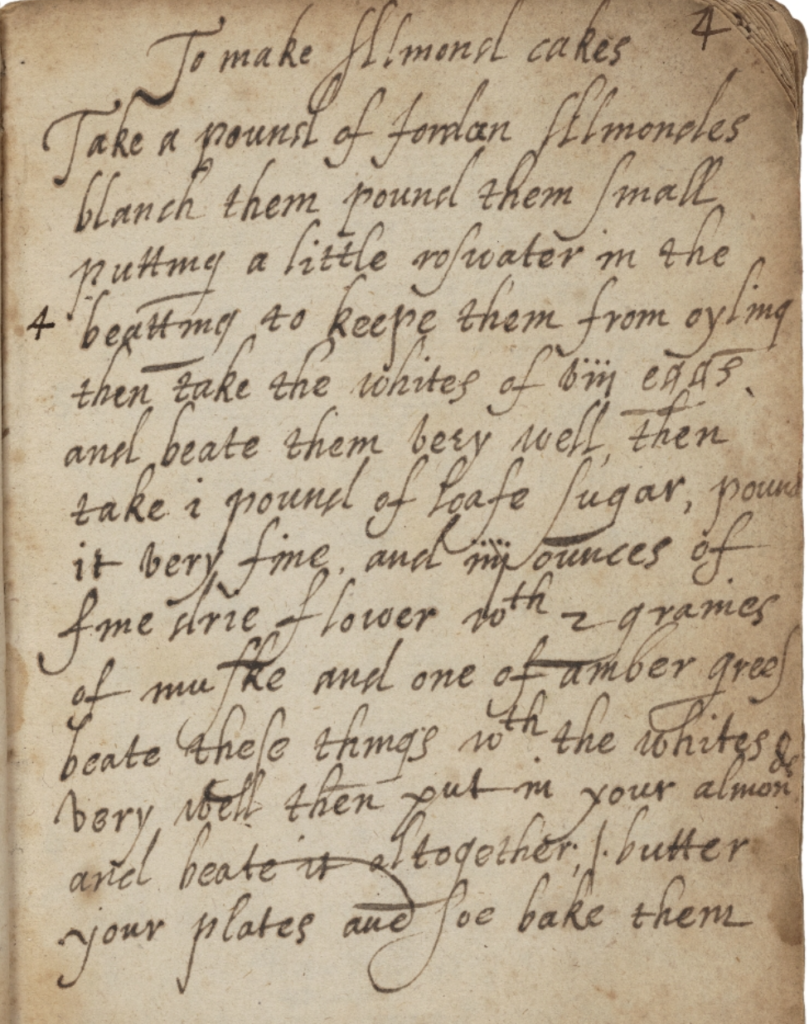 4
To make Allmond cakes
Take a pound of Jordan Allmondes
blanch them pound them small
putting a little roswater in the
4 beatting to keepe them from oyling
then take the whites of viii eggs
and beate them very well, then
take i pound of loafe sugar, pound
it very fine, and iiii ounces of
fine drie flower wth 2 graines
of muske and one of amber grees
beate these things wth the whites
very well then put in your almonds
and beate it altogether, butter
your plates and soe bake them